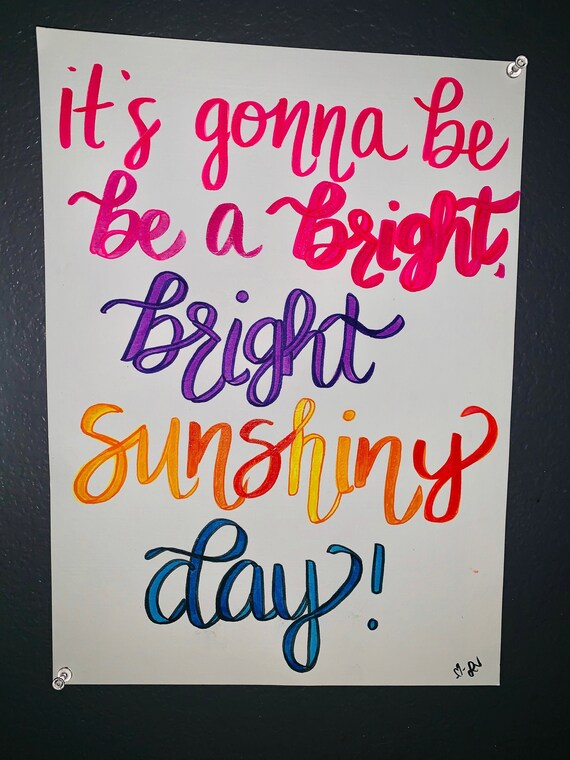 it's gonna be
be a bright,
bright
sunshiny
day!